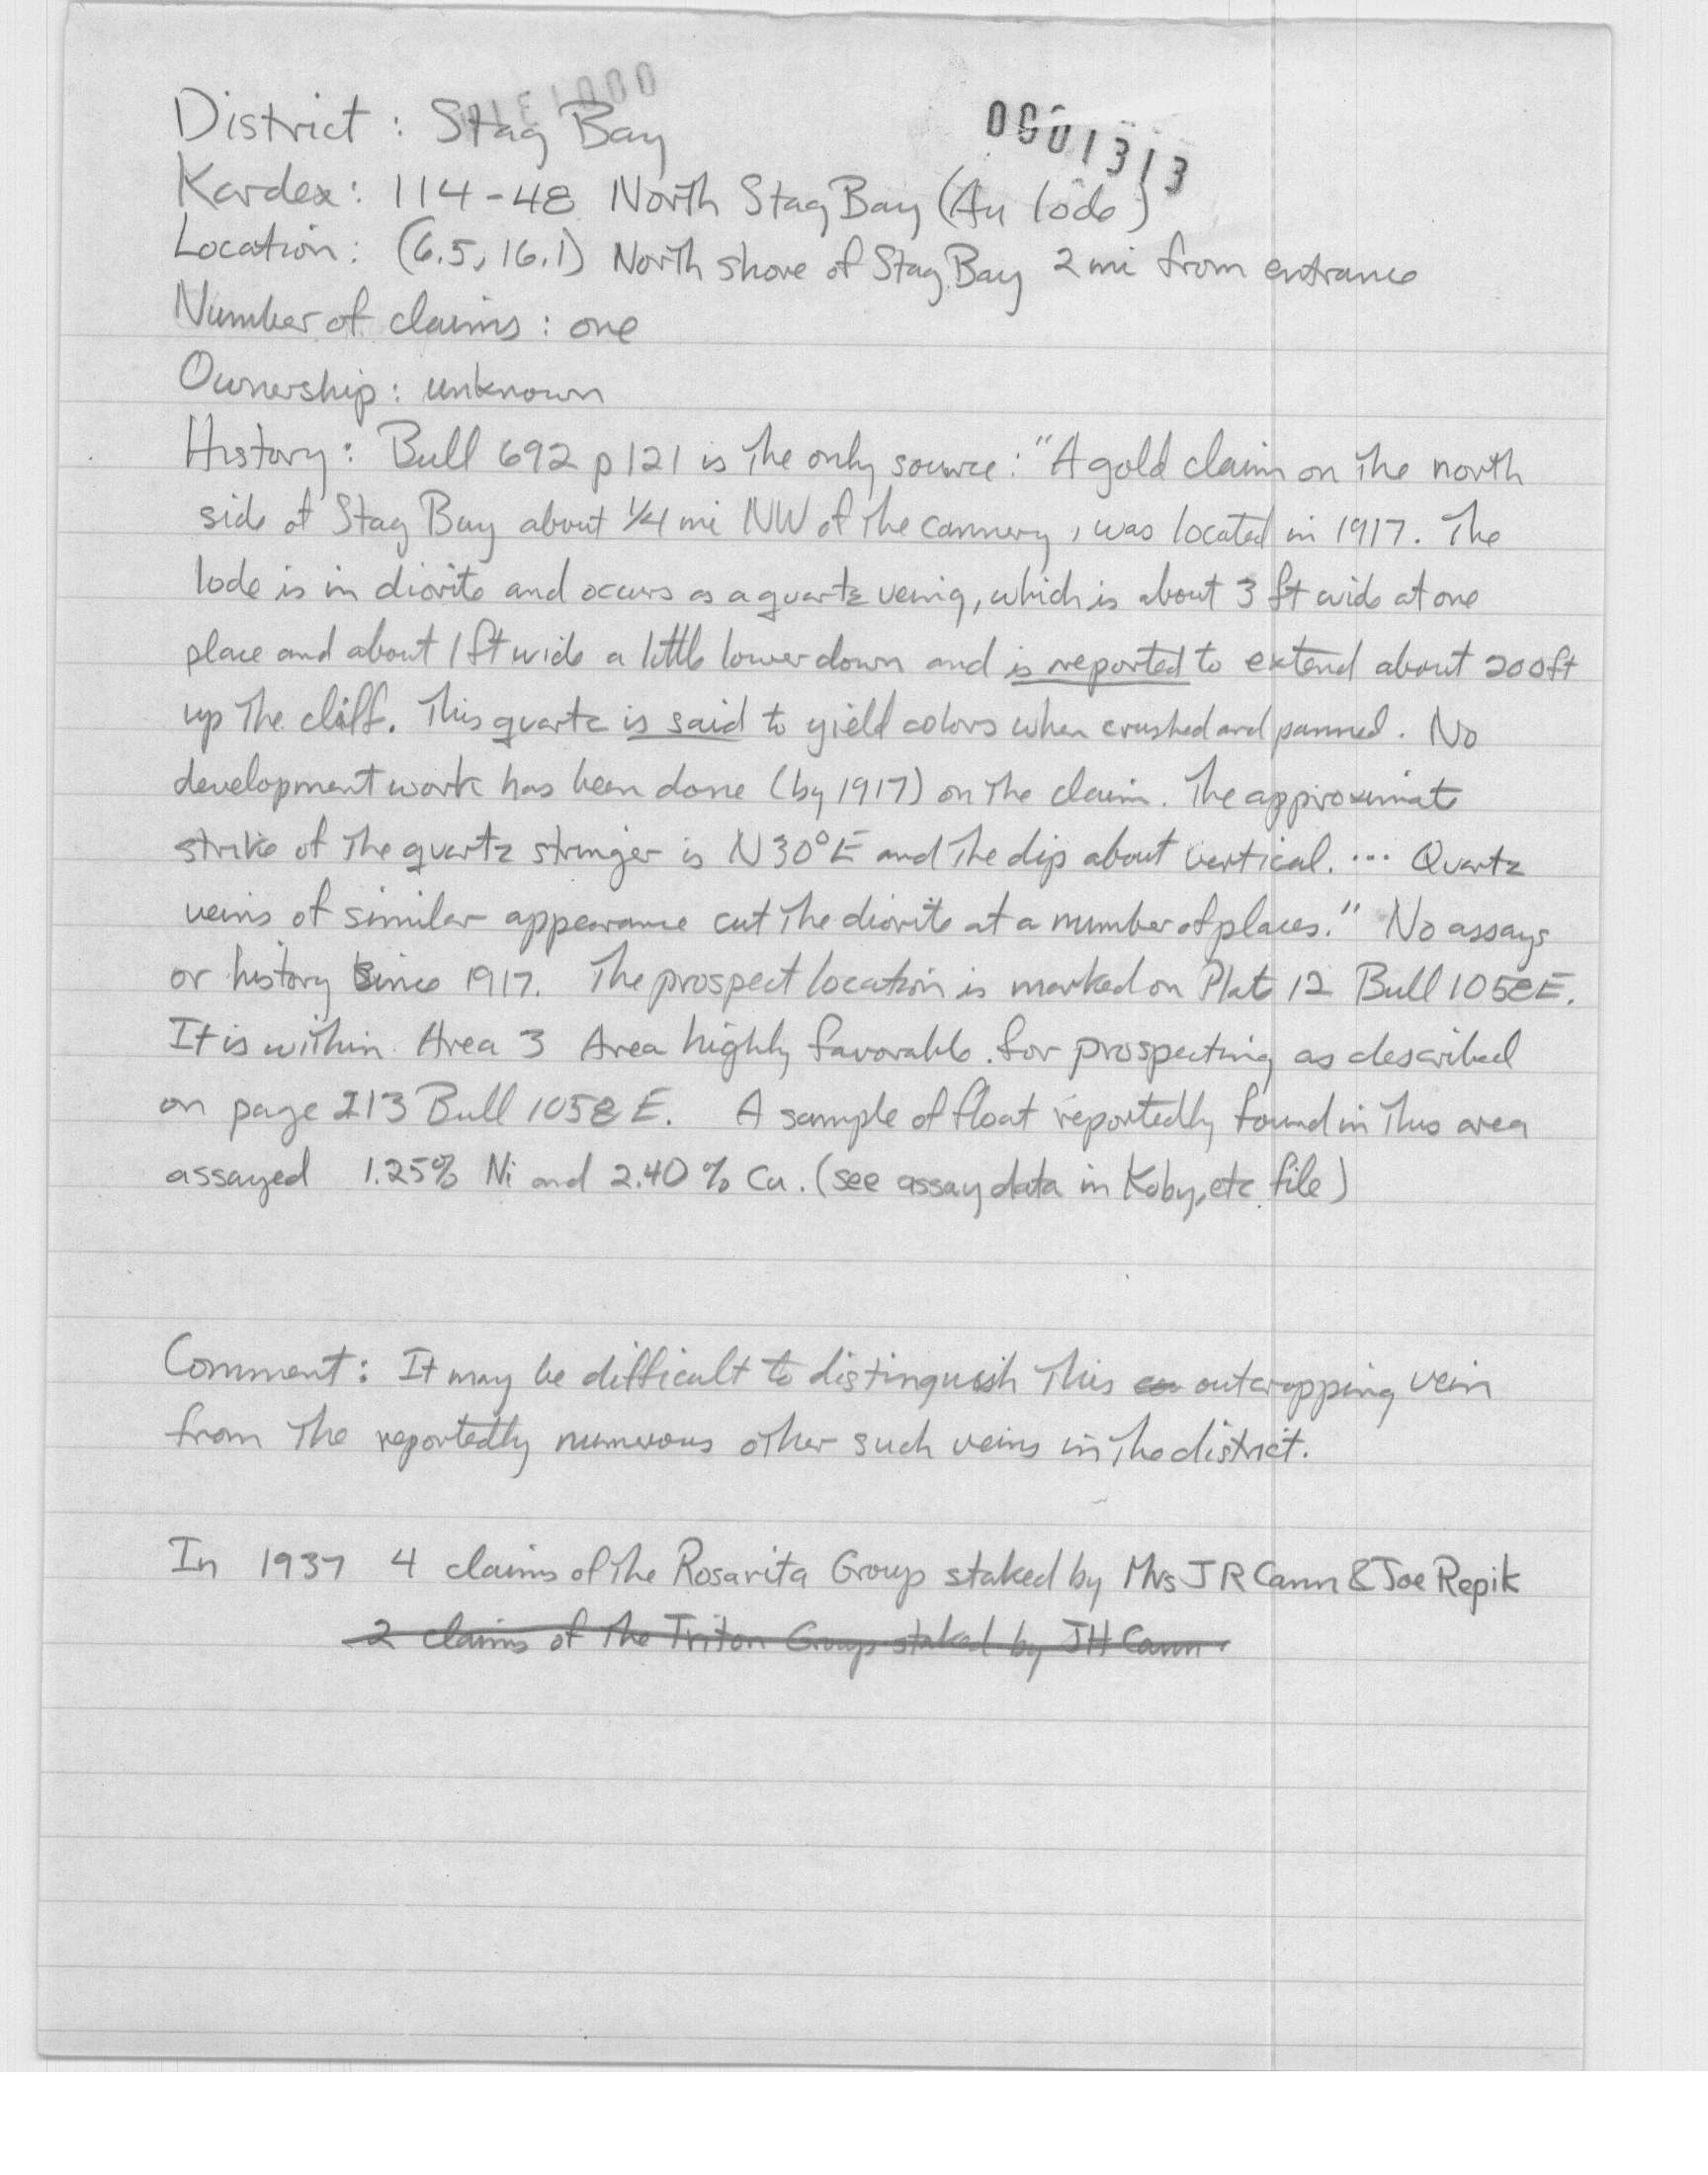 District : Stag Bay
0001313
Kardex: 114-48 North Stag Bay (Au lode)
Location: (6.5, 16.1) North shore of Stag Bay 2 mi from entrance
Number of claims : one
Ownership: unknown
History: Bull 692 p 121 is the only source: "A gold claim on the north
side of Stag Bay about 1/4 mi NW of the cannery, was located in 1917. The
lode is in diorite and occurs as a quartz veinig, which is about 3 ft wide at one
place and about 1 ft wide a little lower down and is reported to extend about 200 ft
up the cliff. This quartz is said to yield colors when crushed and panned. No
development work has been done (by 1917) on the claim. The approximate
strike of the quartz stringer is N30°E and the dip about vertical. ... Quartz
veins of similar appearance cut the diorite at a number of places." No assays
or history since 1917. The prospect location is marked on Plate 12 Bull 1058E.
It is within Area 3 Area highly favorable for prospecting as described
on page 213 Bull 1058 E. A sample of float reportedly found in this area
assayed 1.25% Ni and 2.40 % Cu. (see assay data in Koby, etc file)
Comment: It may be difficult to distinguish this outcropping vein
from the reportedly numerous other such veins in the district.
In 1937 4 claims of the Rosarita Group staked by Mrs J R Cann & Joe Repik
2 claims of the Triton Group staked by JH Cann.